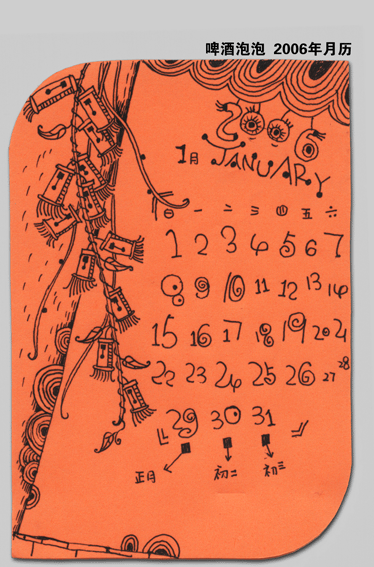 啤酒泡泡 2006年月历
2006
1月 JANUARY
日 一 二 三 四 五 六
1 2 3 4 5 6 7
8 9 10 11 12 13 14
15 16 17 18 19 20 21
22 23 24 25 26 27 28
29 30 31
正月 初二 初三